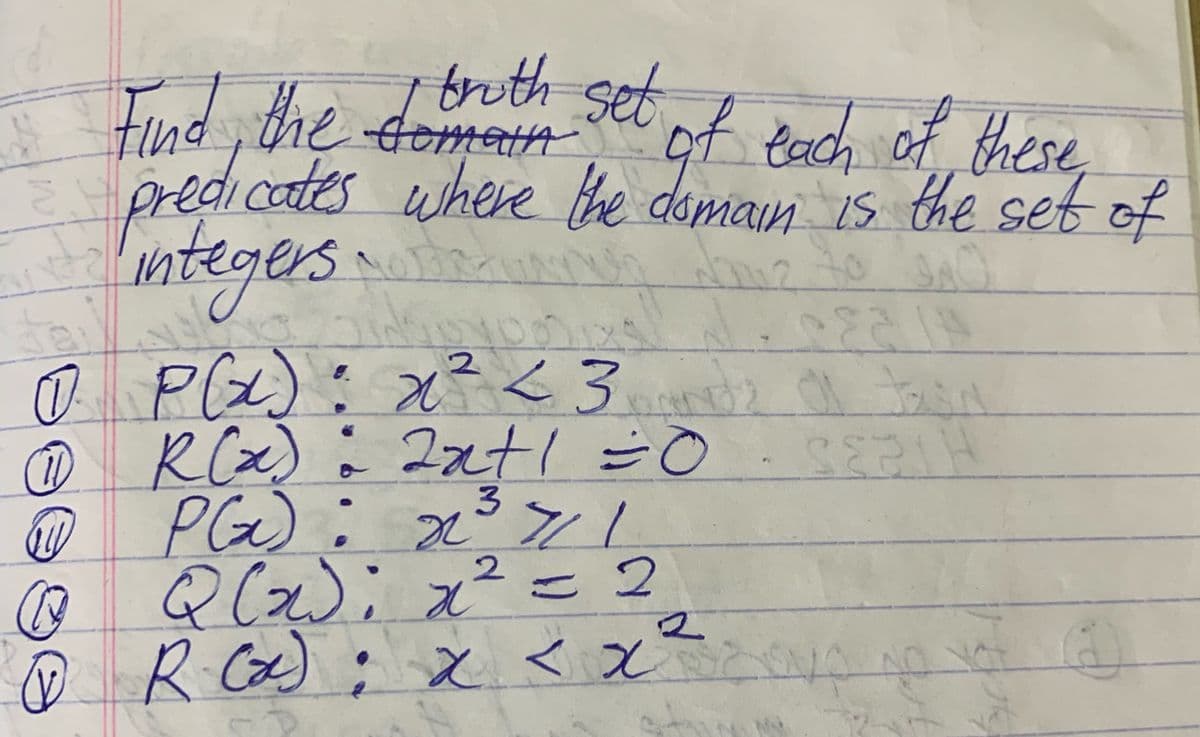 Find the domain truth set of each of these
predicates where the domain is the set of
integers.
I P(x) : x² < 3
II R(x) : 2x+1 = 0
III P(x) : x³ ≥ 1
IV Q(x) : x² = 2
V R(x) : x < x²